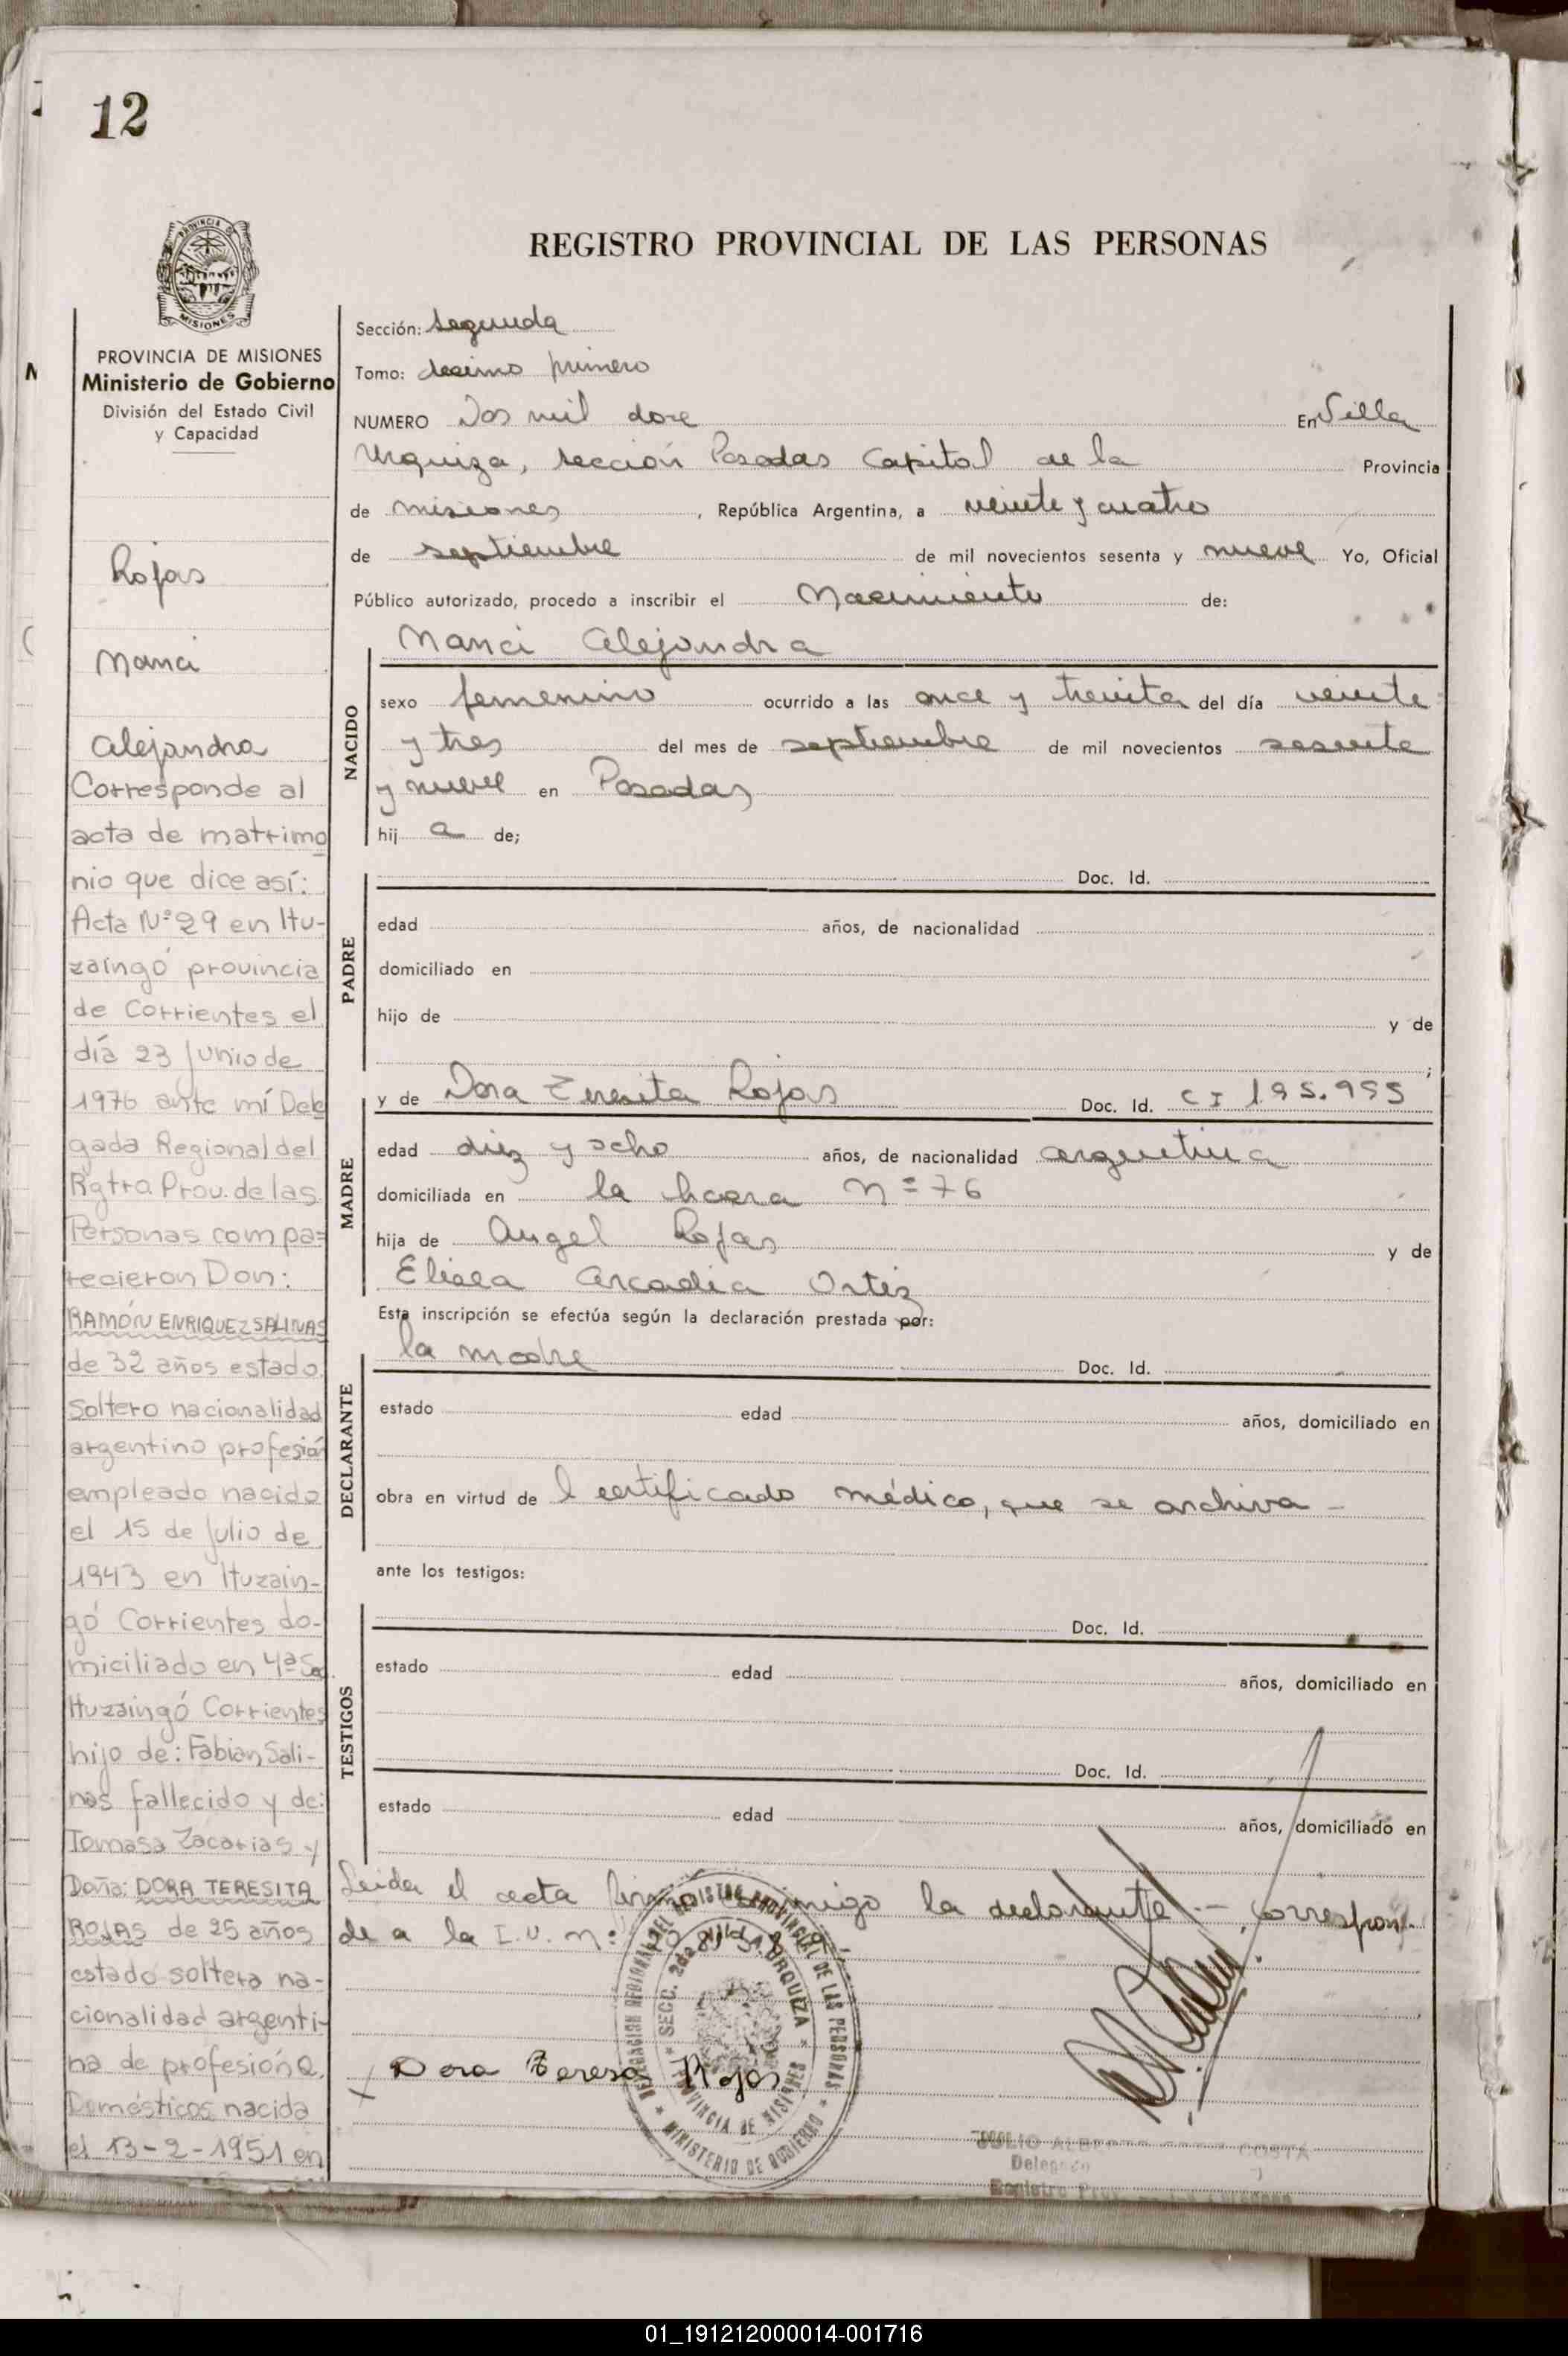 12
PROVINCIA DE MISIONES
Ministerio de Gobierno
División del Estado Civil
y Capacidad
Rojas
Nanci
Alejandra
Corresponde al
acta de matrimo
nio que dice así:
Acta Nº 29 en Itu-
zaingó provincia
de Corrientes el
día 23 Junio de
1976 ante mí Dele
gada Regional del
Rgtro Prov. de las
Personas compa=
recieron Don:
RAMÓN ENRIQUEZ SALINAS
de 32 años estado
soltero nacionalidad
argentino profesión
empleado nacido
el 15 de Julio de
1943 en Ituzain-
gó Corrientes do-
miciliado en 4ª Sec
Ituzaingó Corrientes
hijo de: Fabian Sali-
nas fallecido y de:
Tomasa Zacarias y
Doña: DORA TERESITA
ROJAS de 25 años
estado soltera na-
cionalidad argenti-
na de profesión Q.
Domésticos nacida
el 13-2-1951 en
REGISTRO PROVINCIAL DE LAS PERSONAS
Sección: segunda
Tomo: decimo primero
NUMERO Dos mil doce En Villa
Urquiza, sección Posadas Capital de la Provincia
de misiones, República Argentina, a veinte y cuatro
de septiembre de mil novecientos sesenta y nueve Yo, Oficial
Público autorizado, procedo a inscribir el Nacimiento de:
Nanci Alejandra
NACIDO
sexo femenino ocurrido a las once y treinta del día veinte
y tres del mes de septiembre de mil novecientos sesenta
y nueve en Posadas
hij a de;
PADRE
Doc. Id.
edad años, de nacionalidad
domiciliado en
hijo de y de
;
MADRE
y de Dora Teresita Rojas Doc. Id. CI 195.955
edad diez y ocho años, de nacionalidad argentina
domiciliada en la hacra Nº 76
hija de Angel Rojas y de
Elisea Arcadia Ortiz
Esta inscripción se efectúa según la declaración prestada por:
DECLARANTE
la madre Doc. Id.
estado edad años, domiciliado en
obra en virtud de l certificado médico, que se archiva -
ante los testigos:
TESTIGOS
Doc. Id.
estado edad años, domiciliado en
Doc. Id.
estado edad años, domiciliado en
Leida el acta firma conmigo la declarante.- Correspon-
de a la I.U. Nº:
Dora Teresa Rojas
DELEGACION REGIONAL DEL REGISTRO PROVINCIAL DE LAS PERSONAS
SECC. 2da VILLA URQUIZA
PROVINCIA DE MISIONES
MINISTERIO DE GOBIERNO
JULIO COSTA
Delegado
Registro
01_191212000014-001716